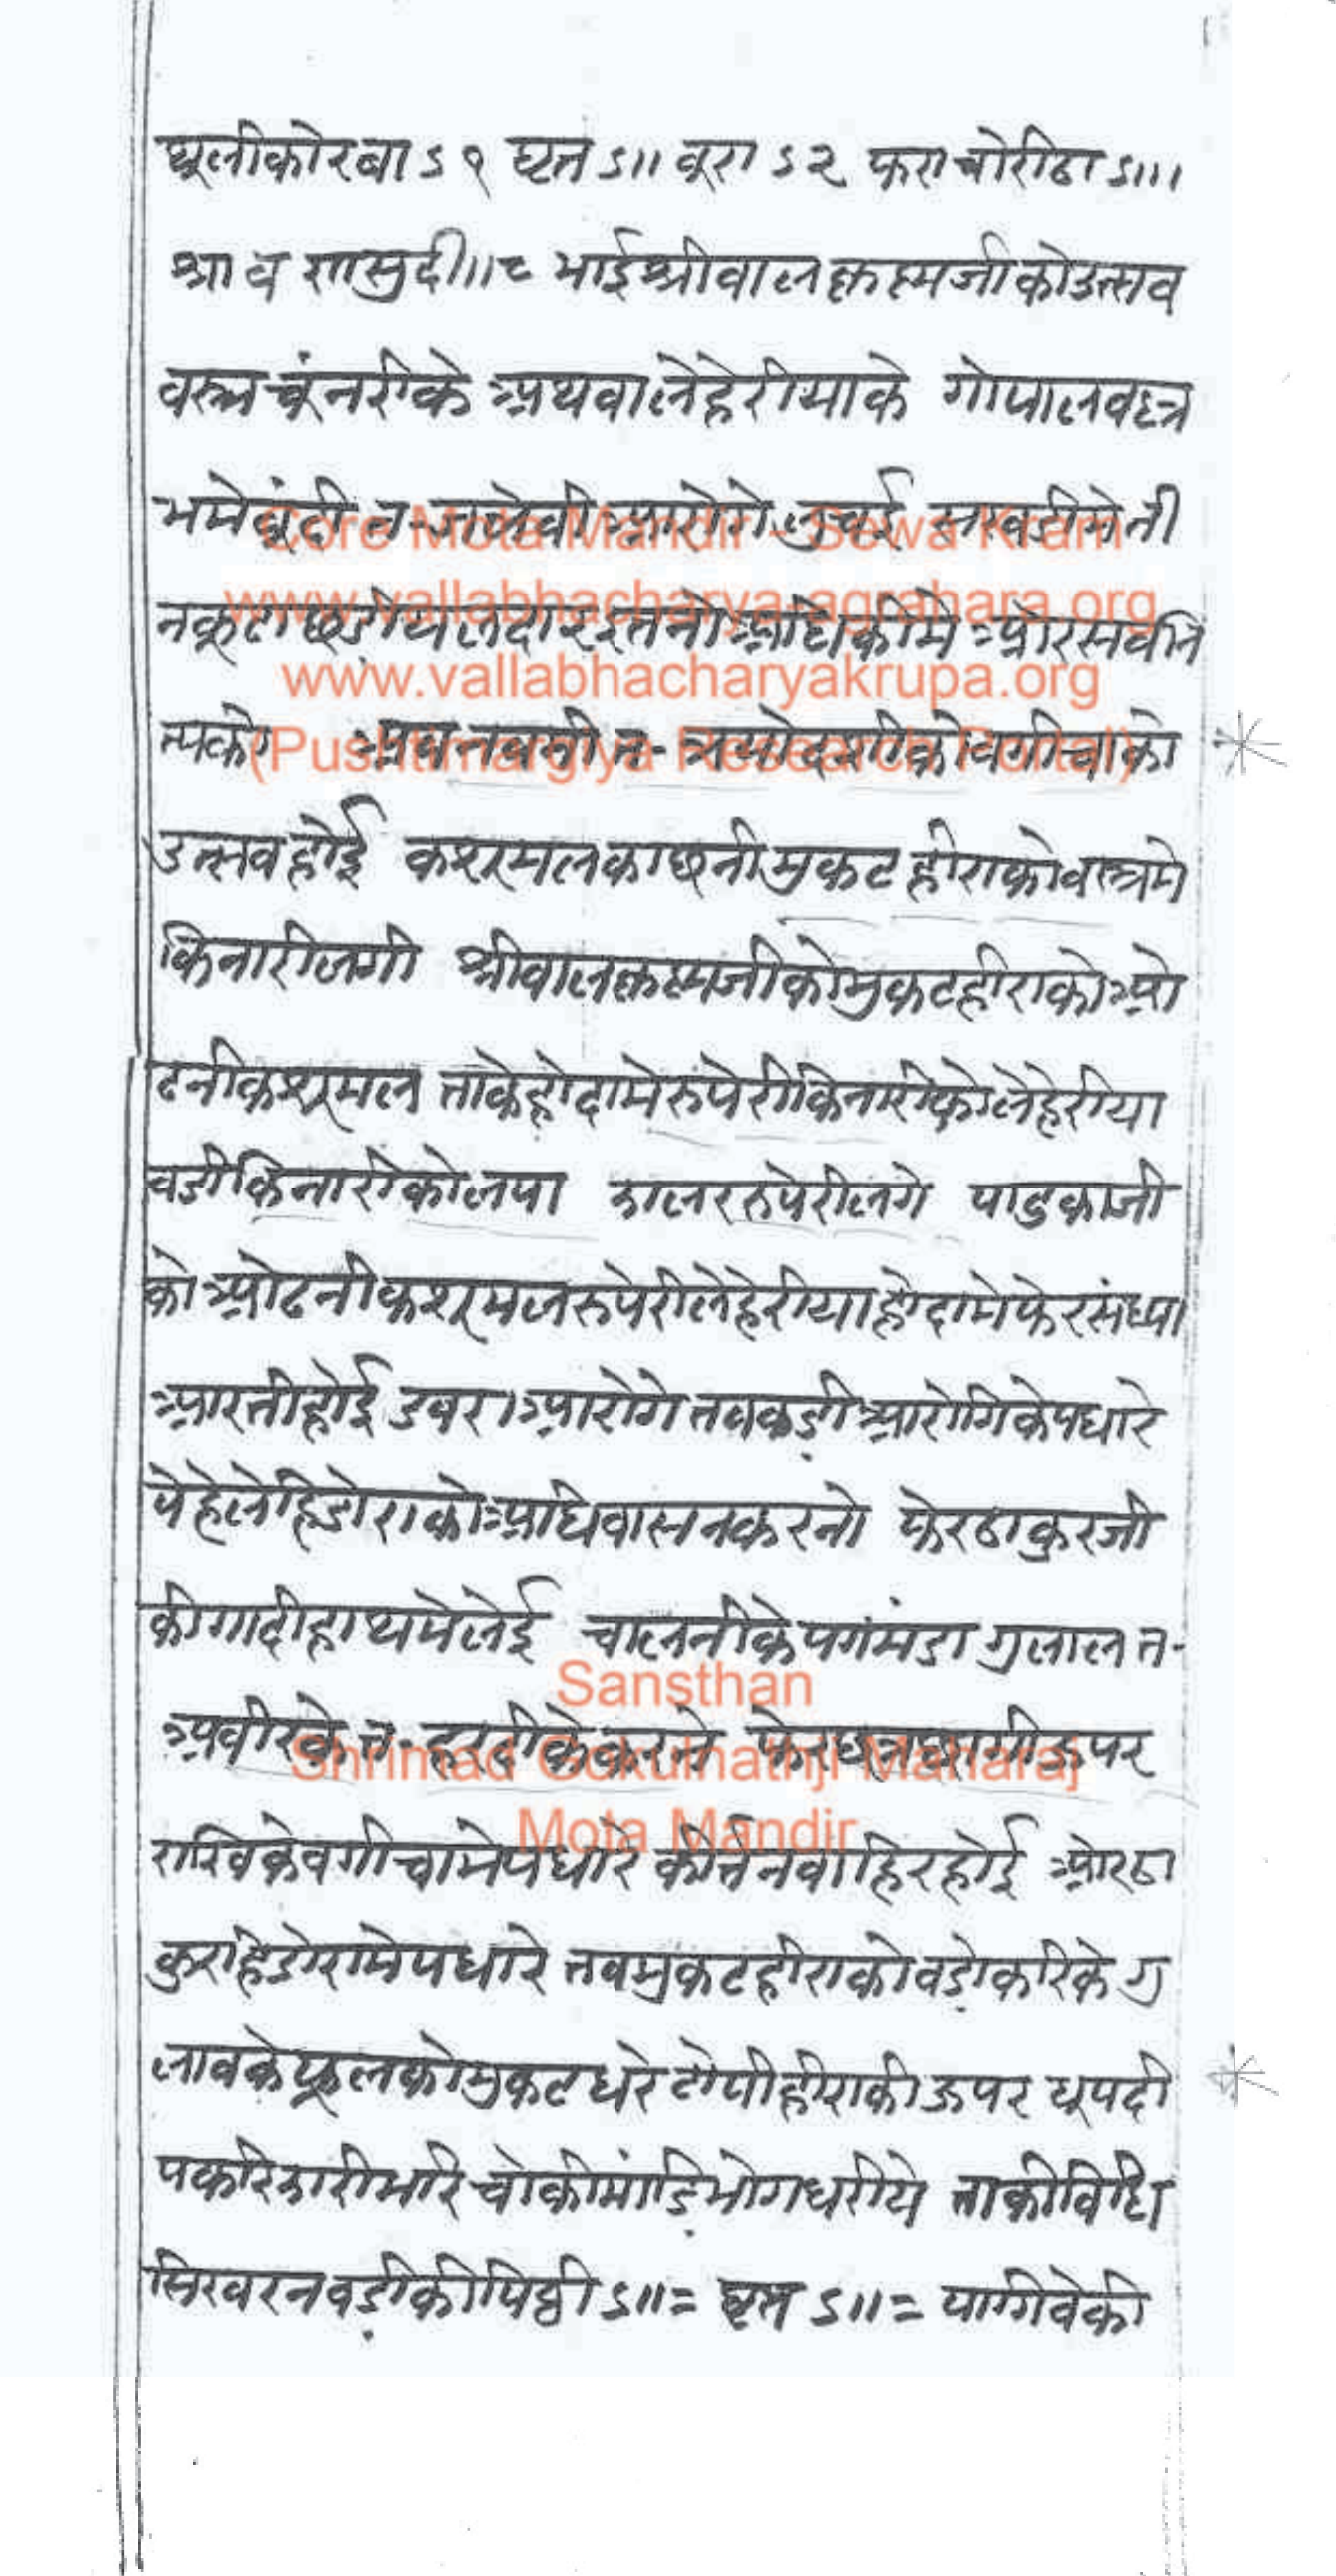 धूलीकोरवा ऽ१ घृत ऽ॥ बूरा ऽ२ फरा चोरीठा ऽ॥।
श्रावणसुदी॥८ भाईश्रीवालकृष्णजीकोउत्सव
वस्त्र चूंनरीके अथवालेहेरीयाके गोपालवल्ल
भमेबूंदी त॰ जलेवी आरोगे लुचई सखडीमेती
नकूटा छडीयलदार इतनोअधिकीमे ओरसर्वनि
त्यको अथ नवमी त॰ त्रयोदशीकोवगीचाको
उत्सवहोई कशरमलकाछनीमुकटहीराकोवस्त्रमे
किनारीलगी श्रीवालकृष्णजीकोमुकटहीराकोओ
ढनीकशरमल ताकेहोदामेरुपेरीकिनारीकोलेहेरीया
वडीकिनारीकोलपा झालररुपेरीलगे पादुकाजी
कोओढनीकशरमलरुपेरीलेहेरीयाहोदामेफेरसंध्या
आरतीहोई डवराआरोगेतवकडीआरोगिकेपधारे
पेहेलेहिडोराकोअधिवासनकरनो फेरठाकुरजी
कीगादीहाथमेलेई चालनीकेपगमंडा गुलाल त॰
अवीरके त॰ हलदीकेकरने फेरछत्रछागीऊपर
राखिकेवगीचामेपधारे कीर्तनवाहिरहोई ओरठा
कुरहिडोरामेपधारे तवमुकटहीराकोवडोकरिके गु
लावकेफूलकोमुकटधरे टोपीहीराकीऊपर धूपदी
पकरिझारीभरि चोकीमांडिभोगधरीये ताकीविधि
सिखरनवडीकीपिठ्ठी ऽ॥= घृत ऽ॥= पागिवेकी
Core Mota Mandir - Sewa Kram
www.vallabhacharya-agrahara.org
www.vallabhacharyakrupa.org
(Pushtimargiya Research Portal)
Sansthan
Shrimad Gokulnathji Maharaj
Mota Mandir